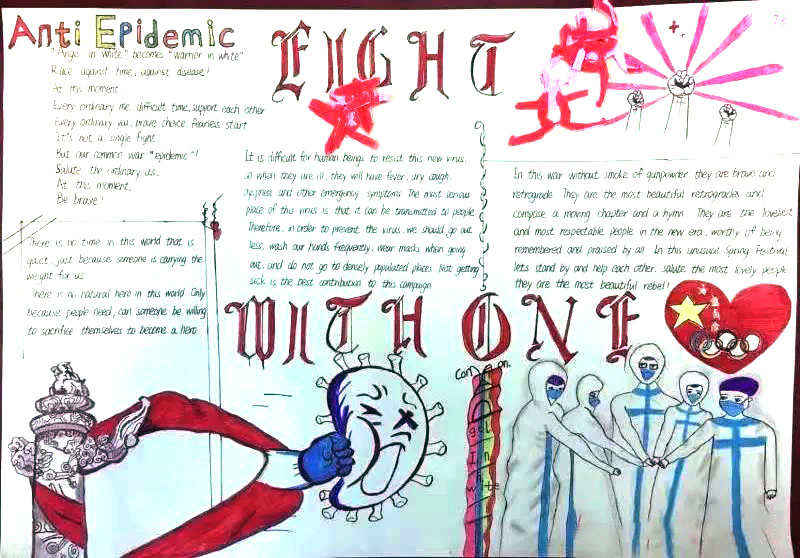 Anti Epidemic
FIGHT
"Angel in white" becomes "warrior in white"
Race against time, against disease!
At this moment
Every ordinary me, difficult time, support each other
Every ordinary you, brave choice, fearless start
It's not a single fight
But our common war "epidemic"!
Salute the ordinary us.
At this moment,
Be brave!
There is no time in this world that is
quiet, just because someone is carrying the
weight for us
There is no natural hero in this world. Only
because people need, can someone be willing
to sacrifice themselves to become a hero.
It is difficult for human beings to resist this new virus,
so when they are ill, they will have fever, dry cough,
dyspnea and other emergency symptoms. The most serious
place of this virus is that it can be transmitted to people
Therefore, in order to prevent the virus, we should go out
less, wash our hands frequently, wear masks when going
out, and do not go to densely populated places. Not getting
sick is the best contribution to this campaign
In this war without smoke of gunpowder, they are brave and
retrograde. They are the most beautiful retrogrades and
compose a moving chapter and a hymn. They are the loveliest
and most respectable people in the new era, worthy of being
remembered and praised by all. In this unusual Spring Festival
lets stand by and help each other, salute the most lovely people
they are the most beautiful rebel!
WITH ONE
Come on.